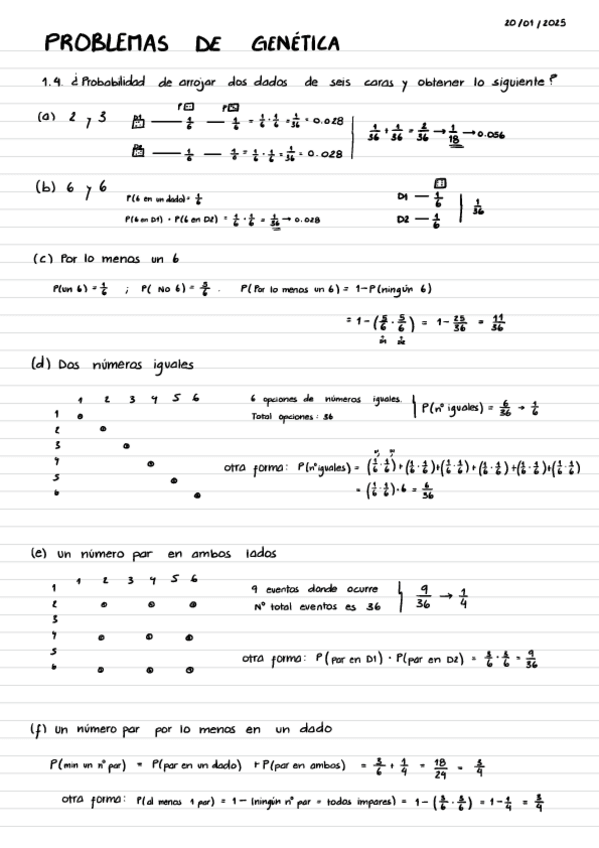 20/01/2025
PROBLEMAS DE GENÉTICA
1.4. ¿Probabilidad de arrojar dos dados de seis caras y obtener lo siguiente?
(a) 2 y 3
D1 — 1/6 — 1/6 = 1/6 · 1/6 = 1/36 = 0.028
— 1/6 — 1/6 = 1/6 · 1/6 = 1/36 = 0.028
1/36 + 1/36 = 2/36 → 1/18 → 0.056
(b) 6 y 6
P(6 en un dado) = 1/6
P(6 en D1) · P(6 en D2) = 1/6 · 1/6 = 1/36 → 0.028
D1 — 1/6
D2 — 1/6
1/36
(c) Por lo menos un 6
P(un 6) = 1/6 ; P( NO 6) = 5/6 . P(Por lo menos un 6) = 1-P(ningún 6)
= 1 - (5/6 · 5/6) = 1 - 25/36 = 11/36
D1 D2
(d) Dos números iguales
1 2 3 4 5 6
1
2
3
4
5
6
6 opciones de números iguales.
Total opciones: 36
P(nº iguales) = 6/36 → 1/6
otra forma: P(nº iguales) = (1/6 · 1/6) + (1/6 · 1/6) + (1/6 · 1/6) + (1/6 · 1/6) + (1/6 · 1/6) + (1/6 · 1/6)
= (1/6 · 1/6) · 6 = 6/36
(e) Un número par en ambos lados
1 2 3 4 5 6
1
2
3
4
5
6
9 eventos donde ocurre
Nº total eventos es 36
9/36 → 1/4
otra forma: P(par en D1) · P(par en D2) = 3/6 · 3/6 = 9/36
(f) Un número par por lo menos en un dado
P(min un nº par) = P(par en un dado) + P(par en ambos) = 3/6 + 1/4 = 18/24 = 3/4
otra forma: P(al menos 1 par) = 1 - (ningún nº par = todas impares) = 1 - (3/6 · 3/6) = 1 - 1/4 = 3/4